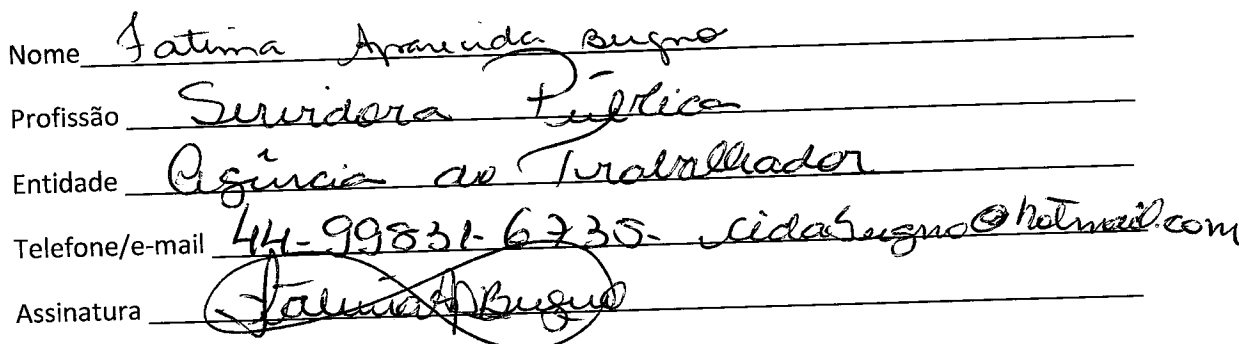 Nome Fatima Aparecida Bugno
Profissão Servidora Pública
Entidade Agência do Trabalhador
Telefone/e-mail 44-99831-6735- cidabugno@hotmail.com
Assinatura Fatima Ap Bugno